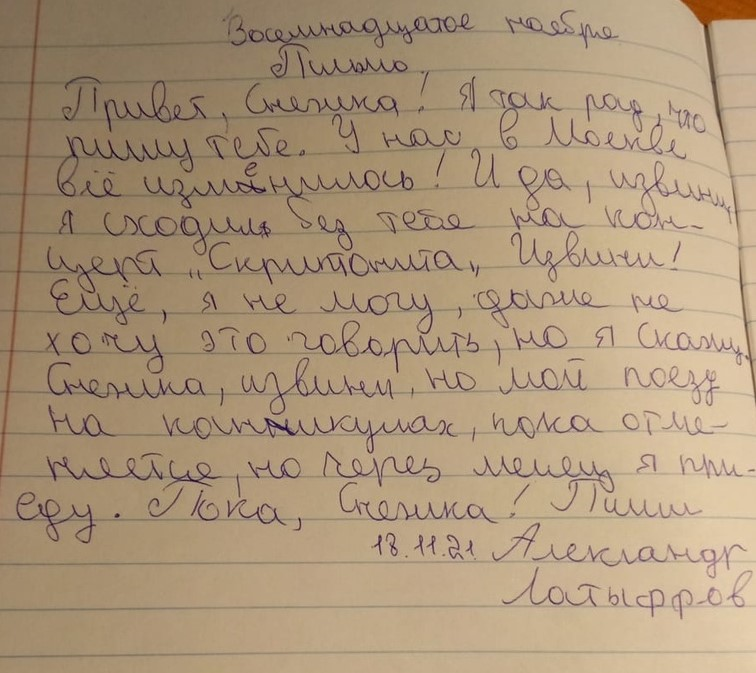 Восемнадцатое ноября
Письмо.
Привет, Снежка! Я так рад, что
пишу тебе. У нас в Москве
всё изменилось! И да, извини,
я сходил без тебя на кон-
церт „Скриптонита„ Извини!
Ещё, я не могу, даже не
хочу это говорить, но я скажу.
Снежка, извини, но мой поезд
на каникулах, пока отме-
няется, но через месец я при-
еду. Пока, Снежка! Пиши
18.11.21. Александр
Латыффов